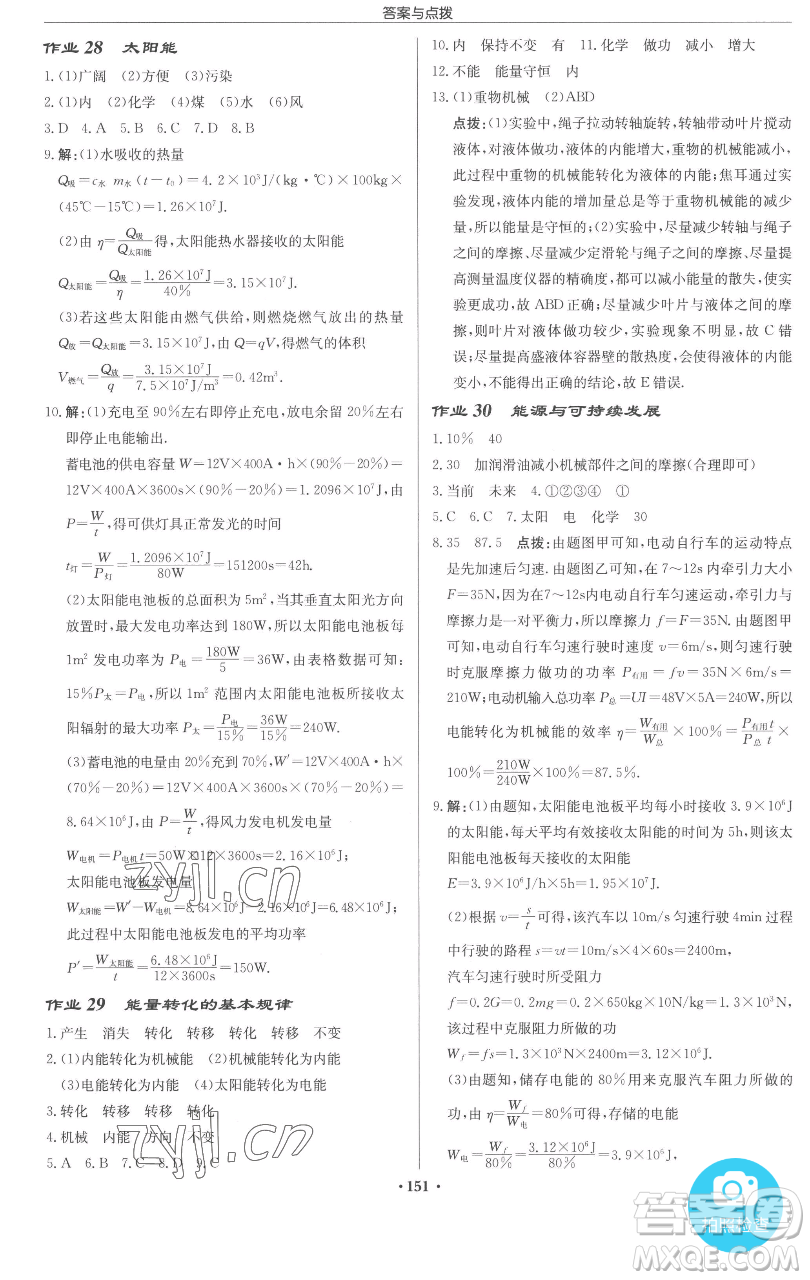 答案与点拨
作业 28 太阳能
1. (1)广阔 (2)方便 (3)污染
2. (1)内 (2)化学 (4)煤 (5)水 (6)风
3. D 4. A 5. B 6. C 7. D 8. B
9. 解:(1)水吸收的热量
Q吸=c水 m水(t-t0)=4.2×10³J/(kg·℃)×100kg×
(45℃-15℃)=1.26×10⁷J.
(2)由 η=Q吸/Q太阳能得,太阳能热水器接收的太阳能
Q太阳能=Q吸/η=1.26×10⁷J/40%=3.15×10⁷J.
(3)若这些太阳能由燃气供给,则燃烧燃气放出的热量
Q放=Q太阳能=3.15×10⁷J,由 Q=qV,得燃气的体积
V燃气=Q放/q=3.15×10⁷J/7.5×10⁷J/m³=0.42m³.
10. 解:(1)充电至 90%左右即停止充电,放电余留 20%左右
即停止电能输出.
蓄电池的供电容量 W=12V×400A·h×(90%-20%)=
12V×400A×3600s×(90%-20%)=1.2096×10⁷J,由
P=W/t,得可供灯具正常发光的时间
t灯=W/P灯=1.2096×10⁷J/80W=151200s=42h.
(2)太阳能电池板的总面积为 5m²,当其垂直太阳光方向
放置时,最大发电功率达到 180W,所以太阳能电池板每
1m² 发电功率为 P电=180W/5=36W,由表格数据可知:
15%P太=P电,所以 1m² 范围内太阳能电池板所接收太
阳辐射的最大功率 P太=P电/15%=36W/15%=240W.
(3)蓄电池的电量由 20%充到 70%,W′=12V×400A·h
×(70%-20%)=12V×400A×3600s×(70%-20%)=
8.64×10⁶J,由 P=W/t,得风力发电机发电量
W电机=P电机t=50W×12×3600s=2.16×10⁶J;
太阳能电池板发电量
W太阳能=W′-W电机=8.64×10⁶J-2.16×10⁶J=6.48×10⁶J;
此过程中太阳能电池板发电的平均功率
P′=W太阳能/t=6.48×10⁶J/12×3600s=150W.
作业 29 能量转化的基本规律
1. 产生 消失 转化 转移 转化 转移 不变
2. (1)内能转化为机械能 (2)机械能转化为内能
(3)电能转化为内能 (4)太阳能转化为电能
3. 转化 转移 转移 转化
4. 机械 内能 方向 不变
5. A 6. B 7. C 8. D 9. C
10. 内 保持不变 有 11. 化学 做功 减小 增大
12. 不能 能量守恒 内
13. (1)重物机械 (2)ABD
点拨:(1)实验中,绳子拉动转轴旋转,转轴带动叶片搅动
液体,对液体做功,液体的内能增大,重物的机械能减小,
此过程中重物的机械能转化为液体的内能;焦耳通过实
验发现,液体内能的增加量总是等于重物机械能的减少
量,所以能量是守恒的;(2)实验中,尽量减少转轴与绳子
之间的摩擦、尽量减少定滑轮与绳子之间的摩擦、尽量提
高测量温度仪器的精确度,都可以减小能量的散失,使实
验更成功,故 ABD 正确;尽量减少叶片与液体之间的摩
擦,则叶片对液体做功较少,实验现象不明显,故 C 错
误;尽量提高盛液体容器壁的散热度,会使得液体的内能
变小,不能得出正确的结论,故 E 错误.
作业 30 能源与可持续发展
1. 10% 40
2. 30 加润滑油减小机械部件之间的摩擦(合理即可)
3. 当前 未来 4. ①②③④ ①
5. C 6. C 7. 太阳 电 化学 30
8. 35 87.5 点拨:由题图甲可知,电动自行车的运动特点
是先加速后匀速.由题图乙可知,在 7~12s 内牵引力大小
F=35N,因为在 7~12s 内电动自行车匀速运动,牵引力与
摩擦力是一对平衡力,所以摩擦力 f=F=35N.由题图甲
可知,电动自行车匀速行驶时速度 v=6m/s,则匀速行驶
时克服摩擦力做功的功率 P有用=fv=35N×6m/s=
210W;电动机输入总功率 P总=UI=48V×5A=240W,所以
电能转化为机械能的效率 η=W有用/W总×100%=P有用t/P总t×
100%=210W/240W×100%=87.5%.
9. 解:(1)由题知,太阳能电池板平均每小时接收 3.9×10⁶J
的太阳能,每天平均有效接收太阳能的时间为 5h,则该太
阳能电池板每天接收的太阳能
E=3.9×10⁶J/h×5h=1.95×10⁷J.
(2)根据 v=s/t可得,该汽车以 10m/s 匀速行驶 4min 过程
中行驶的路程 s=vt=10m/s×4×60s=2400m,
汽车匀速行驶时所受阻力
f=0.2G=0.2mg=0.2×650kg×10N/kg=1.3×10³N,
该过程中克服阻力所做的功
Wf=fs=1.3×10³N×2400m=3.12×10⁶J.
(3)由题知,储存电能的 80%用来克服汽车阻力所做的
功,由 η=Wf/W电=80%可得,存储的电能
W电=Wf/80%=3.12×10⁶J/80%=3.9×10⁶J.
·151·
zyjl.cn
zyjl.cn
拍照检查
答案圈
MXQE.COM